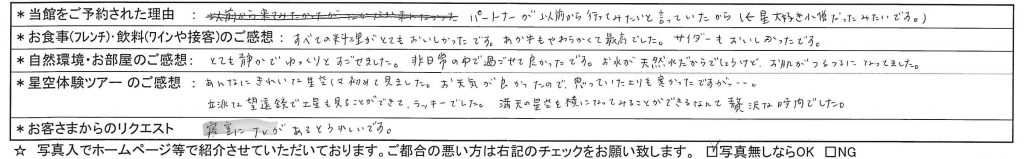 ＊当館をご予約された理由 : パートナーが以前から行ってみたいと言っていたから(←星大好き人間だったみたいです。)
＊お食事(フレンチ)・飲料(ワインや接客)のご感想: すべての料理がとてもおいしかったです。お肉もやわらかくて最高でした。サイダーもおいしかったです。
＊自然環境・お部屋のご感想: とても静かでゆっくりとすごせました。非日常の中で過ごせて良かったです。お水が天然水だからでしょうけど、お肌がつるつるになってました。
＊星空体験ツアーのご感想: あんなにきれいな星空は初めて見ました。お天気が良かったので、思っていたよりも寒かったですが・・・
立派な望遠鏡で土星も見ることができて、ラッキーでした。満天の星空を横になってみることができるなんて贅沢な時間でした。
＊お客さまからのリクエスト 寝室にTVがあるとうれしいです。
☆ 写真入でホームページ等で紹介させていただいております。ご都合の悪い方は右記のチェックをお願い致します。 ☑写真無しならOK □NG